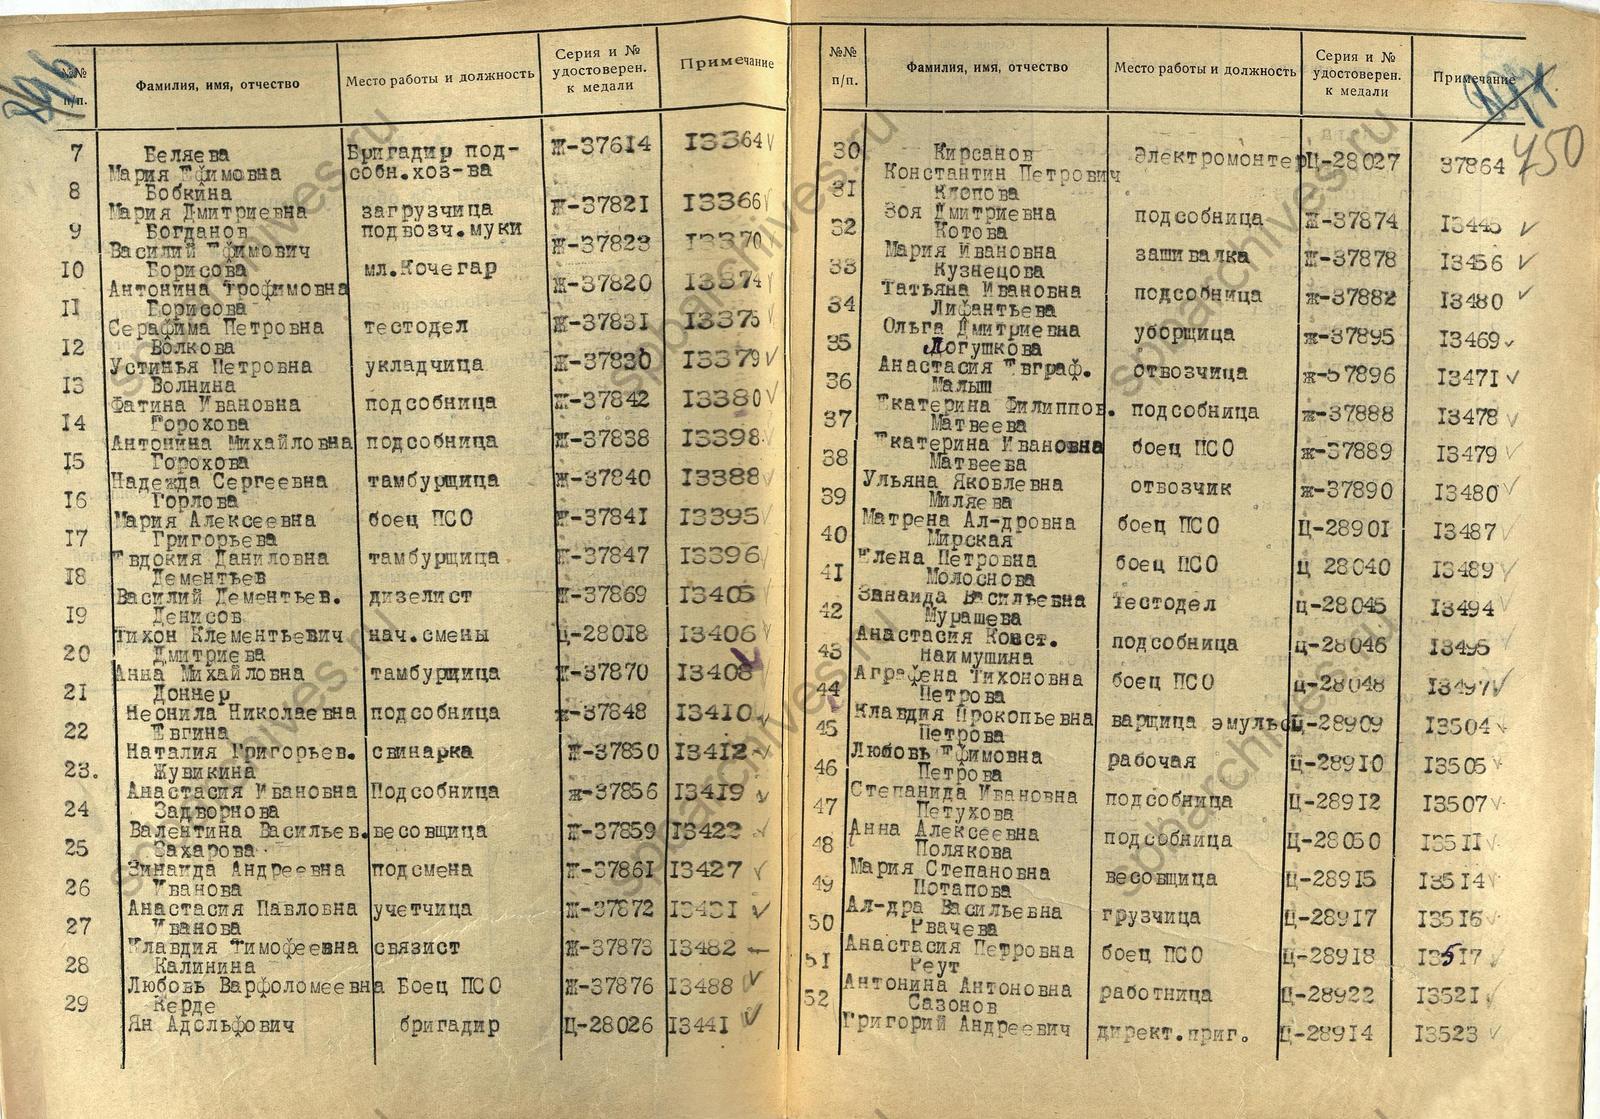 №№ п/п. Фамилия, имя, отчество Место работы и должность Серия и № удостоверен. к медали Примечание
7 Беляева Бригадир под- Ж-37614 13364
Мария Ефимовна собн.хоз-ва
8 Бобкина
Мария Дмитриевна загрузчица Ж-37821 13366
9 Богданов подвозч.муки
Василий Ефимович Ж-37823 13370
10 Борисова мл.Кочегар
Антонина Трофимовна Ж-37820 13374
11 Борисова
Серафима Петровна тестодел Ж-37831 13375
12 Волкова
Устинья Петровна укладчица Ж-37830 13379
13 Волнина
Фатина Ивановна подсобница Ж-37842 13380
14 Горохова
Антонина Михайловна подсобница Ж-37838 13398
15 Горохова
Надежда Сергеевна тамбурщица Ж-37840 13388
16 Горлова
Мария Алексеевна боец ПСО Ж-37841 13395
17 Григорьева
Евдокия Даниловна тамбурщица Ж-37847 13396
18 Дементьев
Василий Дементьев. дизелист Ж-37869 13405
19 Денисов
Тихон Клементьевич нач.смены Ц-28018 13406
20 Дмитриева
Анна Михайловна тамбурщица Ж-37870 13408
21 Доннер
Неонила Николаевна подсобница ж-37848 13410
22 Евгина
Наталия Григорьев. свинарка Ж-37850 13412
23. Жувикина
Анастасия Ивановна Подсобница ж-37856 13419
24 Задворнова
Валентина Васильев. весовщица Ж-37859 13422
25 Захарова
Зинаида Андреевна подсмена Ж-37861 13427
26 Иванова
Анастасия Павловна учетчица Ж-37872 13431
27 Иванова
Клавдия Тимофеевна связист Ж-37873 13482
28 Калинина
Любовь Варфоломеевна Боец ПСО Ж-37876 13488
29 Керде
Ян Адольфович бригадир Ц-28026 13441
№№ п/п. Фамилия, имя, отчество Место работы и должность Серия и № удостоверен. к медали Примечание
450
30 Кирсанов Электромонтер Ц-28027 37864
Константин Петрович
31 Клопова
Зоя Дмитриевна подсобница Ж-37874 13445
32 Котова
Мария Ивановна зашивалка Ж-37878 13456
33 Кузнецова
Татьяна Ивановна подсобница ж-37882 13480
34 Лифантьева
Ольга Дмитриевна уборщица ж-37895 13469
35 Логушкова
Анастасия Евграф. отвозчица ж-37896 13471
36 Малыш
Екатерина Филиппов. подсобница ж-37888 13478
37 Матвеева
Екатерина Ивановна боец ПСО ж-37889 13479
38 Матвеева
Ульяна Яковлевна отвозчик ж-37890 13480
39 Миляева
Матрена Ал-дровна боец ПСО Ц-28901 13487
40 Мирская
Елена Петровна боец ПСО Ц 28040 13489
41 Молоснова
Занаида Васильевна Тестодел ц-28045 13494
42 Мурашева
Анастасия Конст. подсобница ц-28046 13495
43 Наимушина
Аграфена Тихоновна боец ПСО ц-28048 13497
44 Петрова
Клавдия Прокопьевна варщица эмульс Ц-28909 13504
45 Петрова
Любовь Ефимовна рабочая Ц-28910 13505
46 Петрова
Степанида Ивановна подсобница Ц-28912 13507
47 Петухова
Анна Алексеевна подсобница Ц-28050 13511
48 Полякова
Мария Степановна весовщица Ц-28915 13514
49 Потапова
Ал-дра Васильевна грузчица Ц-28917 13516
50 Рвачева
Анастасия Петровна боец ПСО Ц-28918 13517
51 Реут
Антонина Антоновна работница Ц-28922 13521
52 Сазонов
Григорий Андреевич директ.приг. Ц-28914 13523
spbarchives.ru